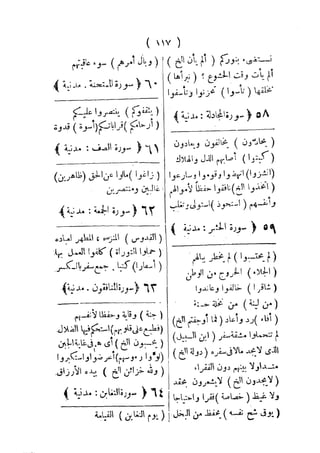 ( ١١٧ )
نستضئ بنوركم ( ألم يأن الخ )
ألم يأت وقت الخشوع ؟ ( نبرأها )
نخلقها ( تأسوا ) تحزنوا وتأسفوا
٥٨ سورة المجادلة : مدنية ﴾
( يحادّون ) يخالفون ويعادون
( كبتوا ) أصابهم الذل والهلاك
( انشزوا ) انهضوا وقوموا وسارعوا
( اتخذوا الخ ) نافقوا حفظاً لأموالهم
وأنفسهم ( استحوذ ) استولى وتغلب
٥٩ سورة الحشر : مدنية ﴾
( لم يحتسبوا ) لم يخطر ببالهم
( الجلاء ) الخروج من الوطن
( شاقوا ) خالفوا وعاندوا
( من لينة ) من نخلة حسنة
( أفاء ) رد وأعاد ( فما أوجفتم الخ )
لم تتحملوا مشقة سفر ( ابن السبيل )
الذى لا يجد مالا فى سفره ( دولة الخ )
متداولا بينهم دون الفقراء
( لا يجدون الخ ) لا يشعرون بحقد
ولا غيظ ( خصاصة ) فقرا واحتياجا
( يوق شح نفسه ) يحفظ من البخل
( وبال أمرهم ) سوء عاقبتهم
٦٠ سورة الممتحنة . مدنية ﴾
( يثقفوكم ) ينتصروا عليكم
( أرحامكم ) قراباتكم ( أسوة ) قدوة
٦١ سورة الصف : مدنية ﴾
( زاغوا ) مالوا عن الحق ( ظاهرين )
غالبين ومنتصرين
٦٢ سورة الجمعة : مدنية ﴾
( القدوس ) المنزه ؛ المطهر لعباده
( حملوا التوراة ) كلفوا العمل بها
( أسفارا ) كتبا . جمع سفر بالكسر
٦٣ سورة المنافقون . مدنية ﴾
( جنة ) وقاية وحفظا لأنفسهم
( فطبع على قلوبهم ) استحكم فيها الضلال
( يحسبون الخ ) أى هم فى غاية الجبن
( لووا رءوسهم ) أعرضوا واستكبروا
( ولله خزائن الخ ) بيده الأرزاق
٦٤ سورة التغابن : مدنية ﴾
( يوم التغابن ) القيامة